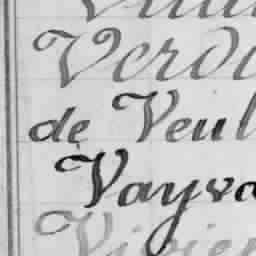 Verd
de Veul
Vayva
Vivier